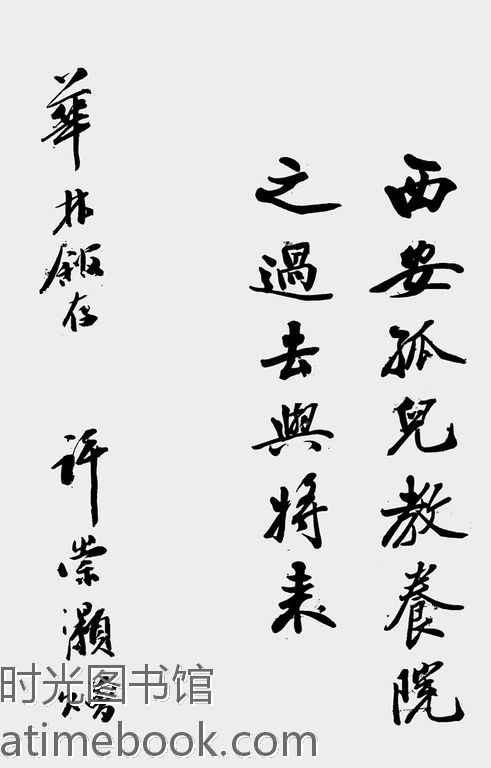 西安孤兒教養院
之過去與將来
華
存
許崇灝
时光图书馆
atimebook.com